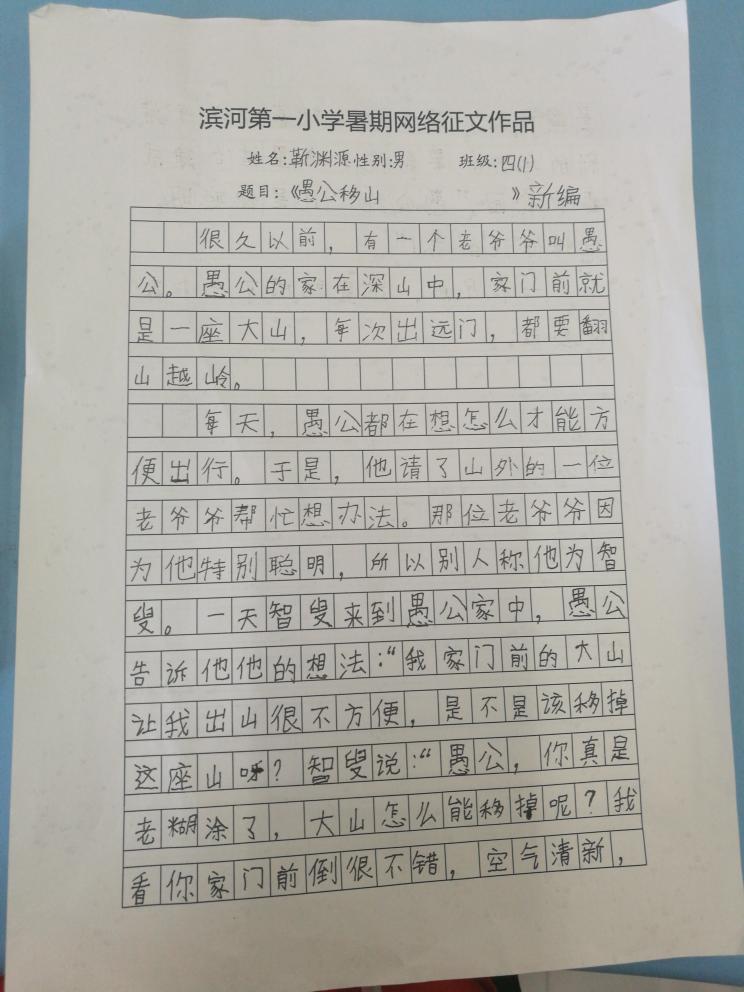 滨河第一小学暑期网络征文作品
姓名:靳渊源 性别:男 班级:四(1)
题目:《愚公移山 》新编
很久以前，有一个老爷爷叫愚
公。愚公的家在深山中，家门前就
是一座大山，每次出远门，都要翻
山越岭。
每天，愚公都在想怎么才能方
便出行。于是，他请了山外的一位
老爷爷帮忙想办法。那位老爷爷因
为他特别聪明，所以别人称他为智
叟。一天智叟来到愚公家中，愚公
告诉他他的想法：“我家门前的大山
让我出山很不方便，是不是该移掉
这座山呀？智叟说：“愚公，你真是
老糊涂了，大山怎么能移掉呢？我
看你家门前倒很不错，空气清新，